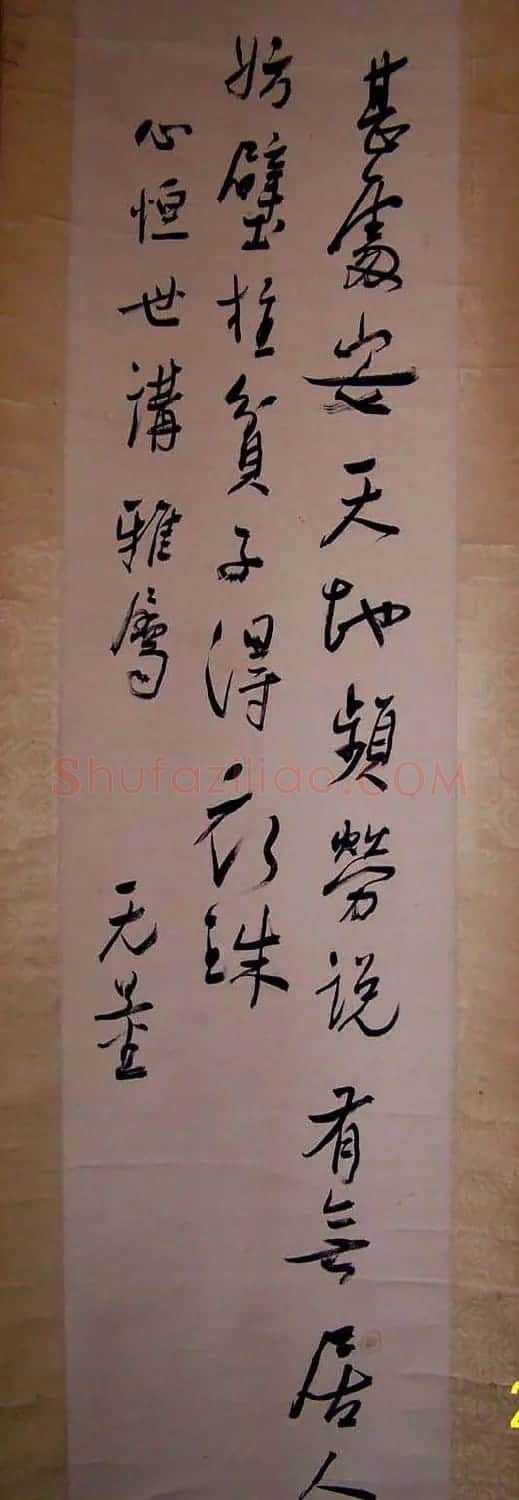 甚處安天地頻勞説有無居人
妨壁柱貧子得衣珠
心恒世講雅屬
无量
Shufaziliao.COM
2